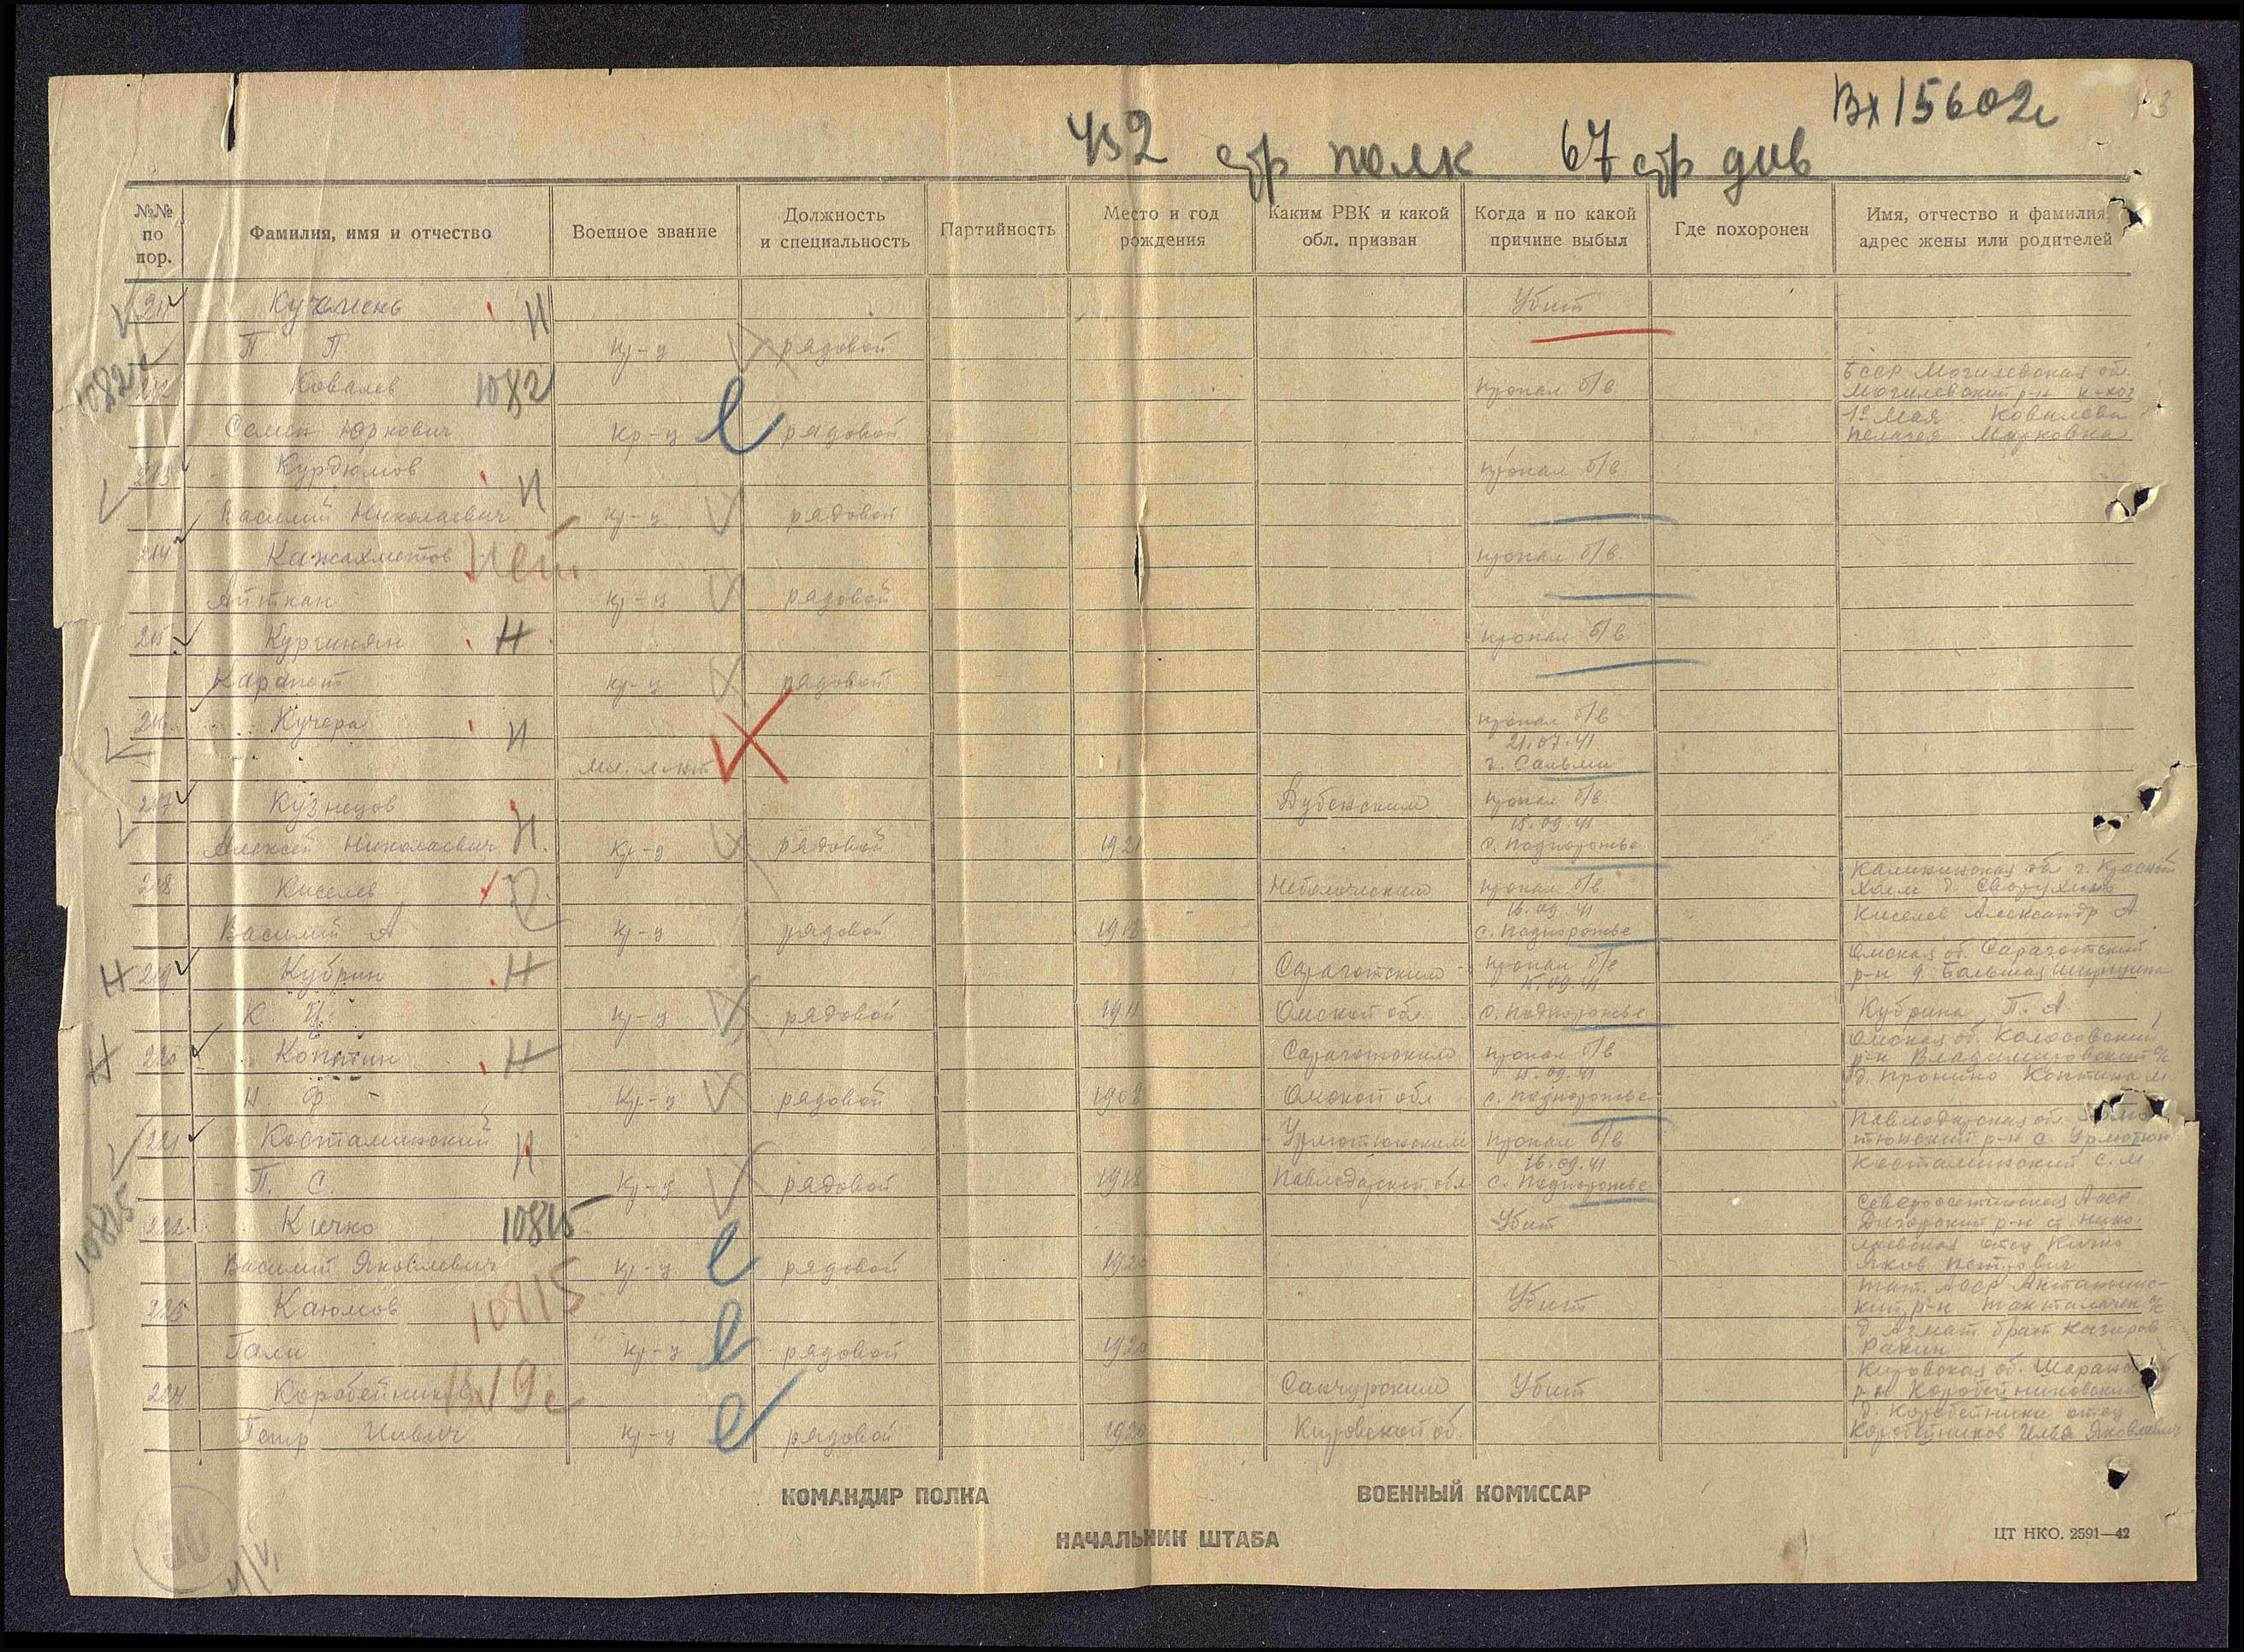 Вх 15602с
452 стр полк 67 стр див
№№ по пор.
Фамилия, имя и отчество
Военное звание
Должность и специальность
Партийность
Место и год рождения
Каким РВК и какой обл. призван
Когда и по какой причине выбыл
Где похоронен
Имя, отчество и фамилия, адрес жены или родителей
211 Н Убит
П П кр-ц рядовой
212 Ковалев 1082 пропал б/в БССР Могилевская об.
Могилевский р-н к-хоз
Семен Юркович кр-ц рядовой 1е Мая Ковалева
Пелагея
213 Курдюмов Н пропал б/в
Василий Николаевич кр-ц рядовой
214 Кажахметов нет пропал б/в
Айткан кр-ц рядовой
215 Кургинян Н пропал б/в
Карапет кр-ц рядовой
216 Кучера Н пропал б/в
21.07.41
мл. л-нт г. Сальми
217 Кузнецов Дубенским пропал б/в
15.09.41
Алексей Николаевич Н кр-ц рядовой 1921 с. Подпорожье
218 Киселев пропал б/в Калининская об. г. Красный
Холм д.
16.09.41
Василий А кр-ц рядовой 1918 с. Подпорожье Киселев Александр А
219 Кубрин Н Саргатским пропал б/в Омская об. Саргатский
р-н д. Большая
15.09.41
К. И. кр-ц рядовой 1911 Омской обл. с. Подпорожье Кубрина П. А
220 Коптин Н Саргатским пропал б/в Омская об. Колосовский
р-н Владимировский с/с
15.09.41
Н. Ф кр-ц рядовой 1908 Омской обл с. Подпорожье д. Пронино Коптина М
221 Костаминский Н Урлютюпским пропал б/в Павлодарская об.
р-н с. Урлютюп
16.09.41
П. С. кр-ц рядовой 1918 Павлодарской обл с. Подпорожье Костаминский С. М
222 Кичко 10815 Убит Североосетинская АССР
Дигорский р-н ст. Нико-
лаевская отец Кичко
Василий Яковлевич кр-ц рядовой 1920 Яков Петрович
223 Каюмов 10815 Убит Тат. АССР Актанышс-
кий р-н с/с
Гали кр-ц рядовой 1920 д. Азмат брат
224 Коробейников Санчурским Убит Кировская об.
р-н Коробейниковский
д. Коробейники отец
Петр Ильич кр-ц рядовой 1920 Кировской об. Коробейников Илья Яковлевич
10821
10815
КОМАНДИР ПОЛКА
ВОЕННЫЙ КОМИССАР
НАЧАЛЬНИК ШТАБА
ЦТ НКО. 2591—42